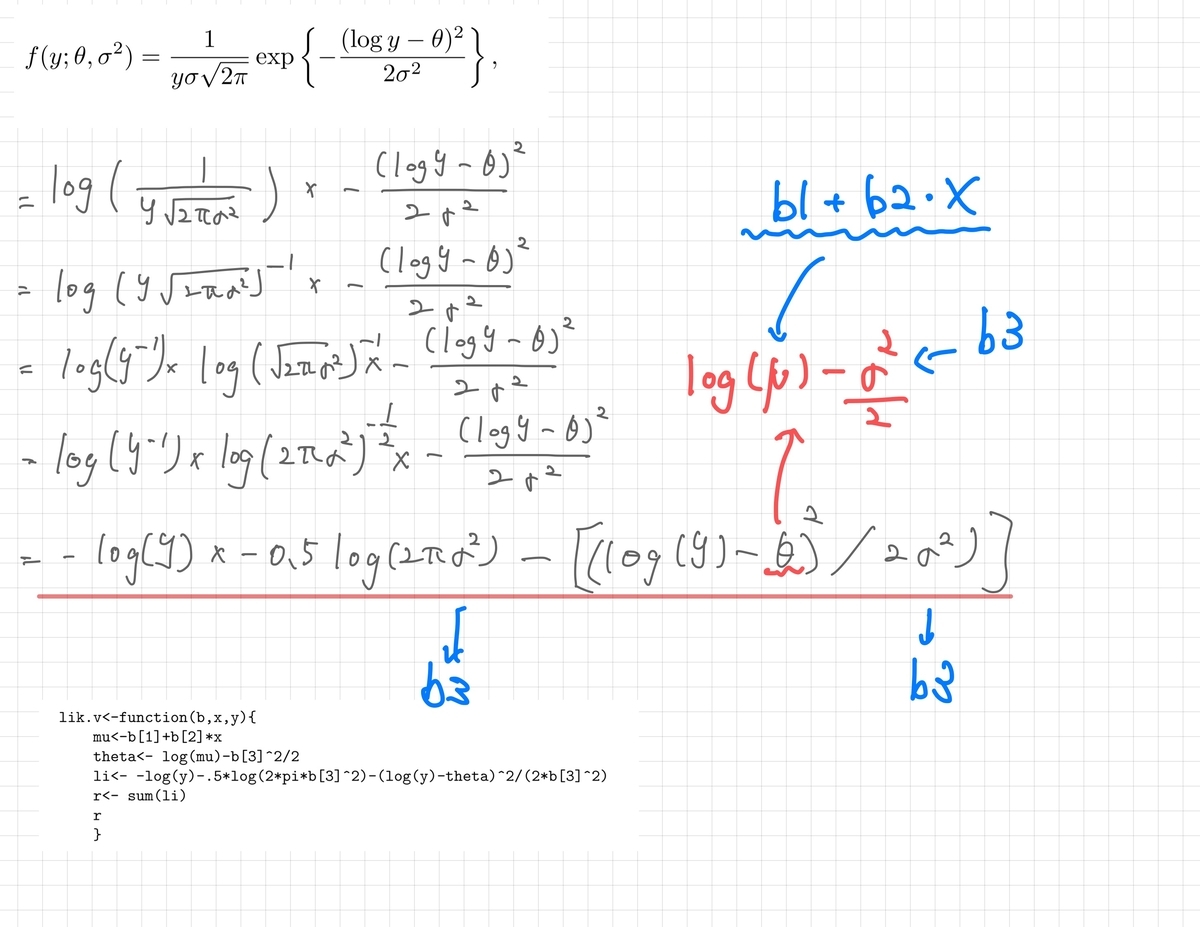 f(y; θ, σ²) = 1/(yσ√2π) exp{−(log y − θ)²/2σ²},
= log(1/(y√2πσ²)) × − (log y − θ)²/2σ²
b1 + b2·X
= log(y√2πσ²)⁻¹ × − (log y − θ)²/2σ²
= log(y⁻¹) × log(√2πσ²)⁻¹ × − (log y − θ)²/2σ²
log(μ) − σ²/2 ← b3
= log(y⁻¹) × log(2πσ²)^−1/2 × − (log y − θ)²/2σ²
= − log(y) × − 0.5 log(2πσ²) − [((log(y) − θ)² / 2σ²)]
b3 b3
lik.v<-function(b,x,y){
mu<-b[1]+b[2]*x
theta<- log(mu)-b[3]^2/2
li<- -log(y)-.5*log(2*pi*b[3]^2)-(log(y)-theta)^2/(2*b[3]^2)
r<- sum(li)
r
}